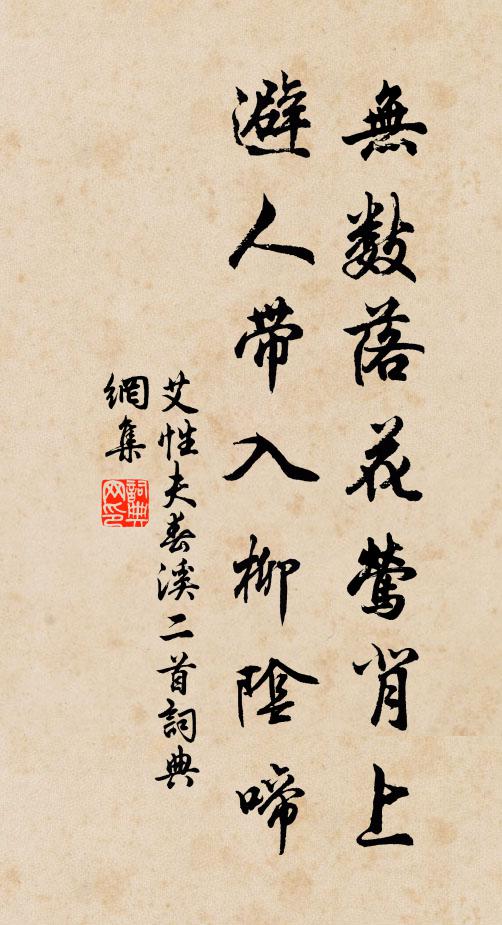 無數落花鶯背上
避人帶入柳陰啼
艾性夫春溪二首詞典
網集
詞典
网印